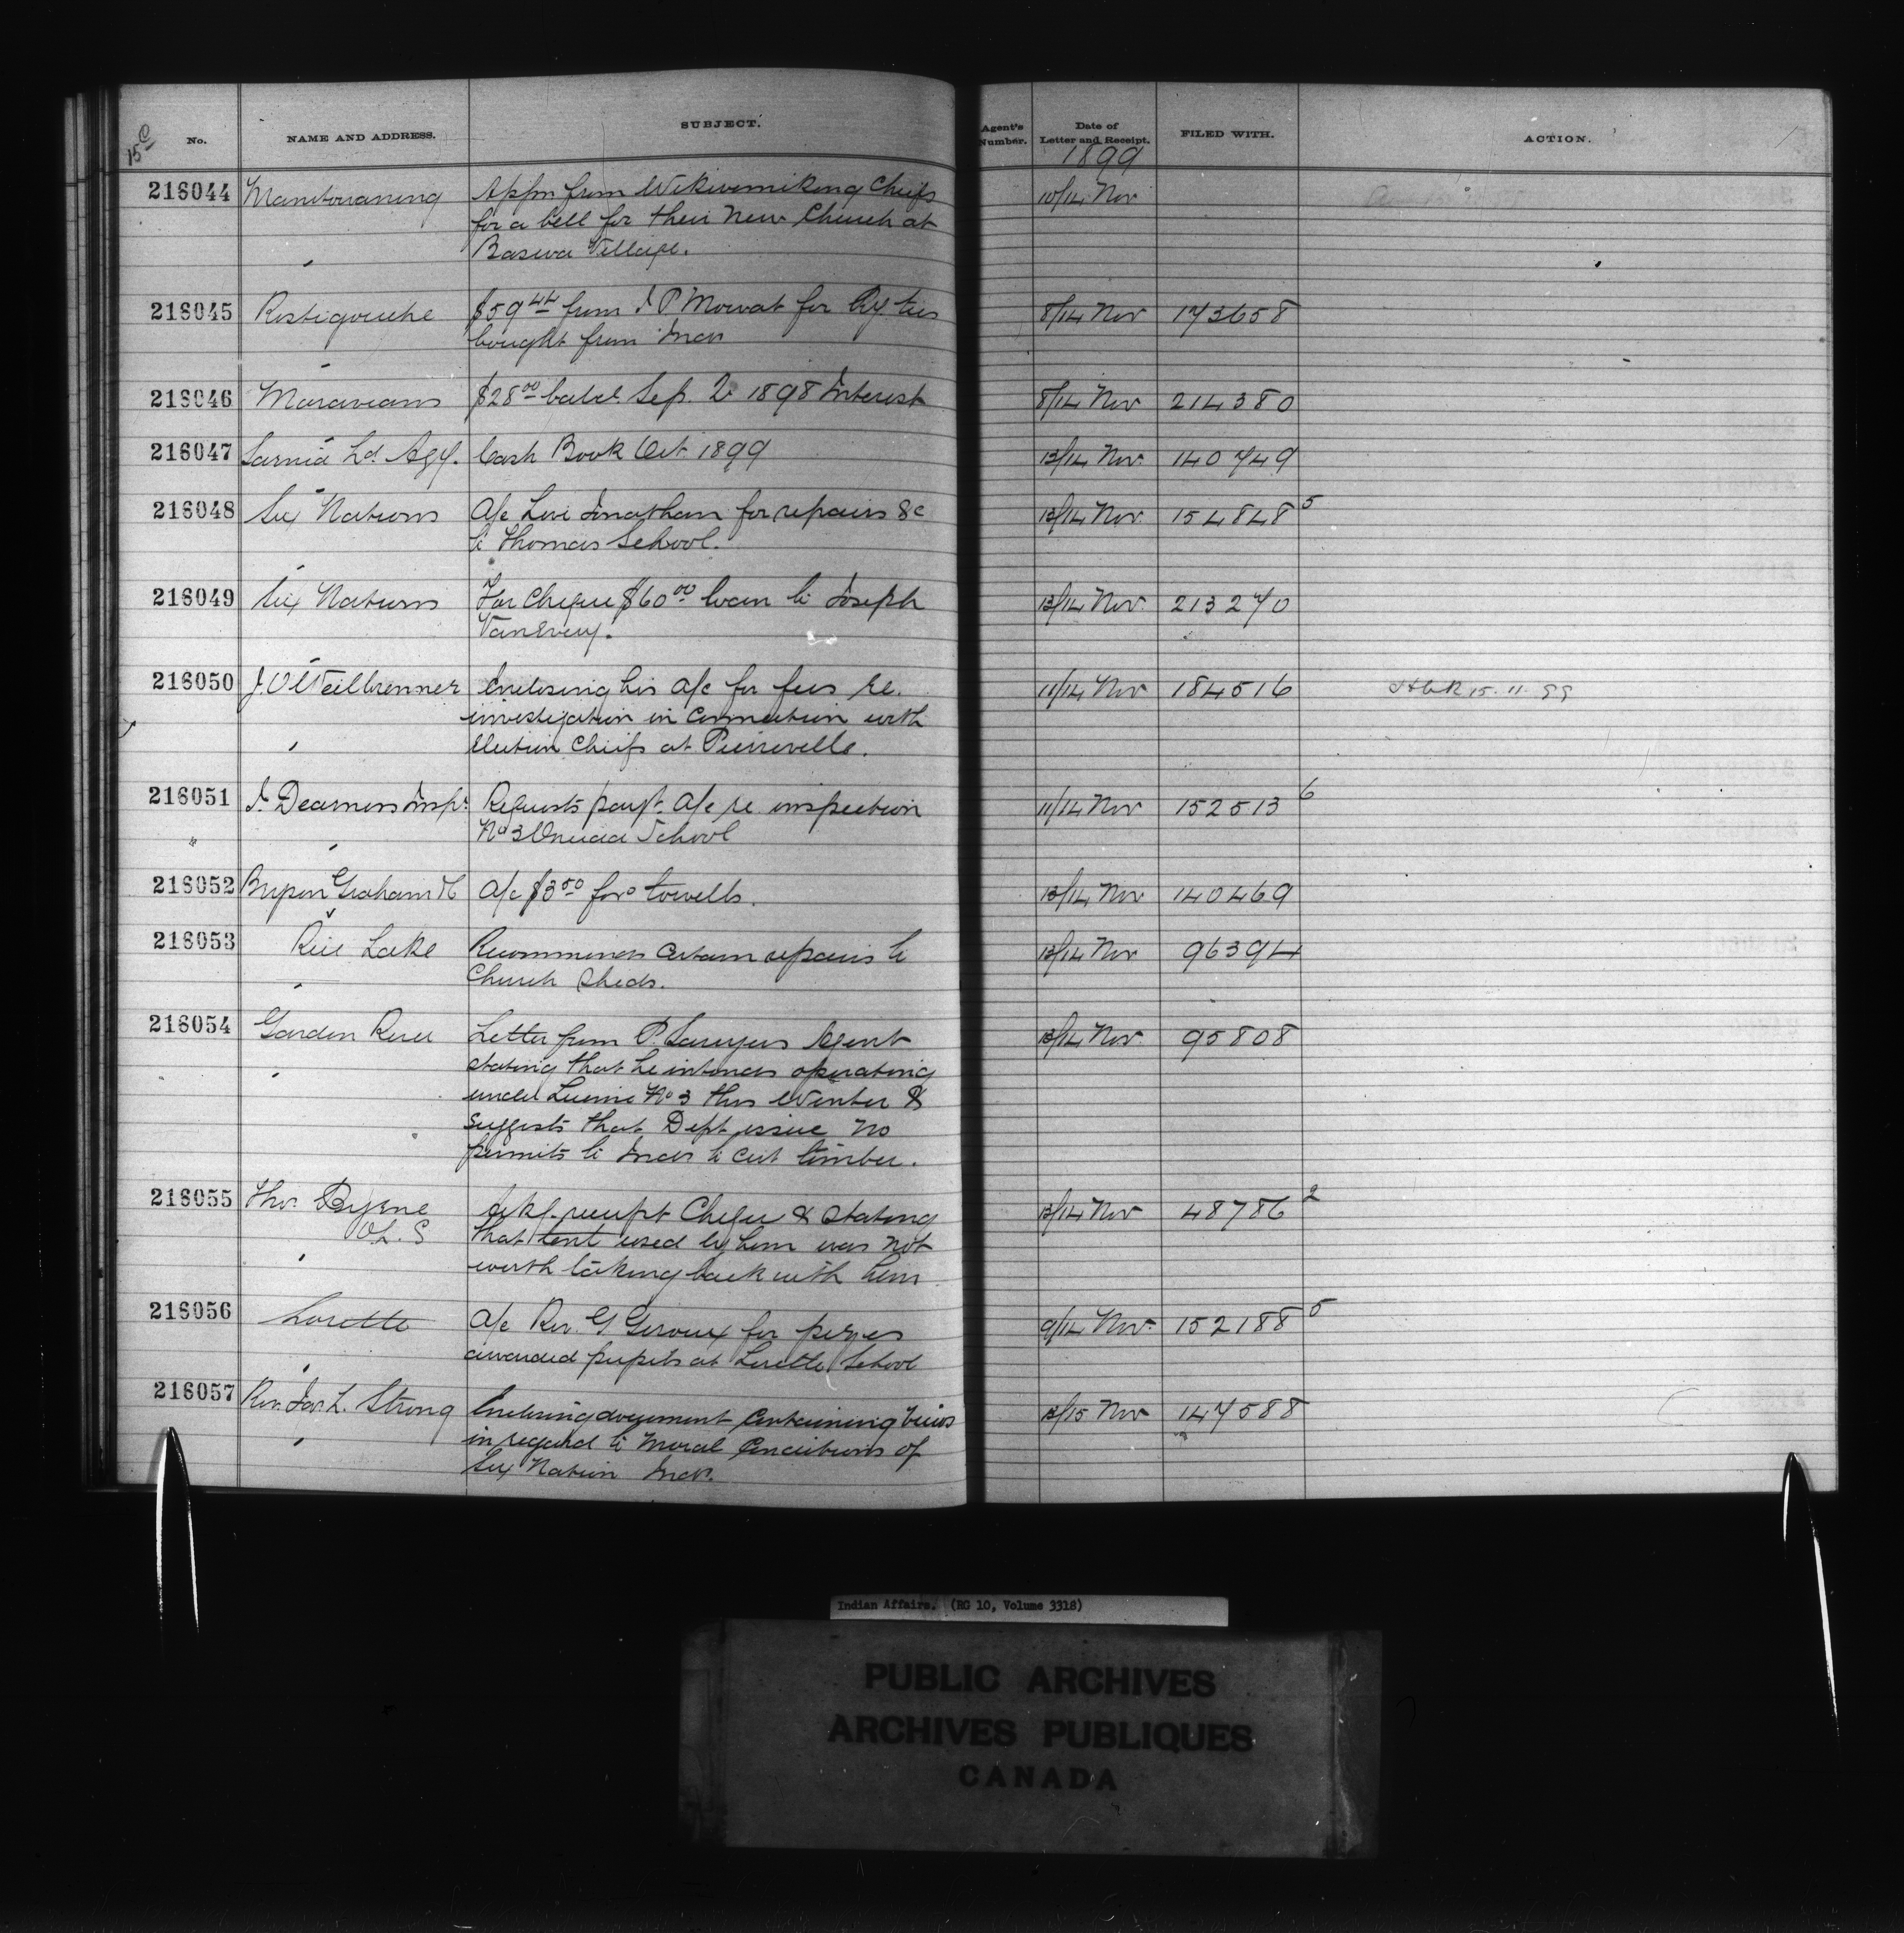 15 c
No. NAME AND ADDRESS. SUBJECT. Agent's Number. Date of Letter and Receipt. FILED WITH. ACTION.
1899
216044 Manitowaning Appn from Wikwemikong Chiefs 10/14 Nov
for a bell for their New Church at
Baswa Village.
216045 Restigouche $59 44 from J P Mowat for Ry. ties 8/14 Nov 173658
bought from Inds
216046 Moravians $28 00 Sep. 1898 Interest 8/14 Nov 214380
216047 Sarnia Ld. Agy. Cash Book Oct 1899 13/14 Nov. 140749
216048 Six Nations A/c Levi Jonathan for repairs &c 13/14 Nov. 154848 5
to Thomas School.
216049 Six Nations For Cheque $60 00 loan to Joseph 13/14 Nov. 213270
VanEvery.
216050 J. Enclosing his A/c for fees re. 11/14 Nov 184516 15.11.99
investigation in connection with
Election Chiefs at Pierreville.
216051 J. Dearness Inspr. Requests payt. A/c re. inspection 11/14 Nov 152513 6
" No 3 Oneida School
216052 Bryson Graham & Co A/c $3 50 for towells. 13/14 Nov 140469
216053 Rice Lake Recommends certain repairs to 13/14 Nov 96394
Church Sheds.
216054 Garden River Letter from P. Sawyers Agent 13/14 Nov 95808
stating that he intends operating
under License No 3 this Winter &
suggests that Dept issue no
permits to Inds to cut timber.
216055 Thos. Byrne Ackg. receipt Cheque & stating 13/14 Nov 48786 2
O.L.S that tent used by him was not
worth taking back with him
216056 Lorette A/c Rev. G Giroux for prizes 9/14 Nov. 152188 5
awarded pupils at Lorette School
216057 Rev. Jas. L. Strong Enclosing document containing views 13/15 Nov 147588
in regard to Moral Conditions of
Six Nation Inds.
Indian Affairs. (RG 10, Volume 3318)
PUBLIC ARCHIVES
ARCHIVES PUBLIQUES
CANADA